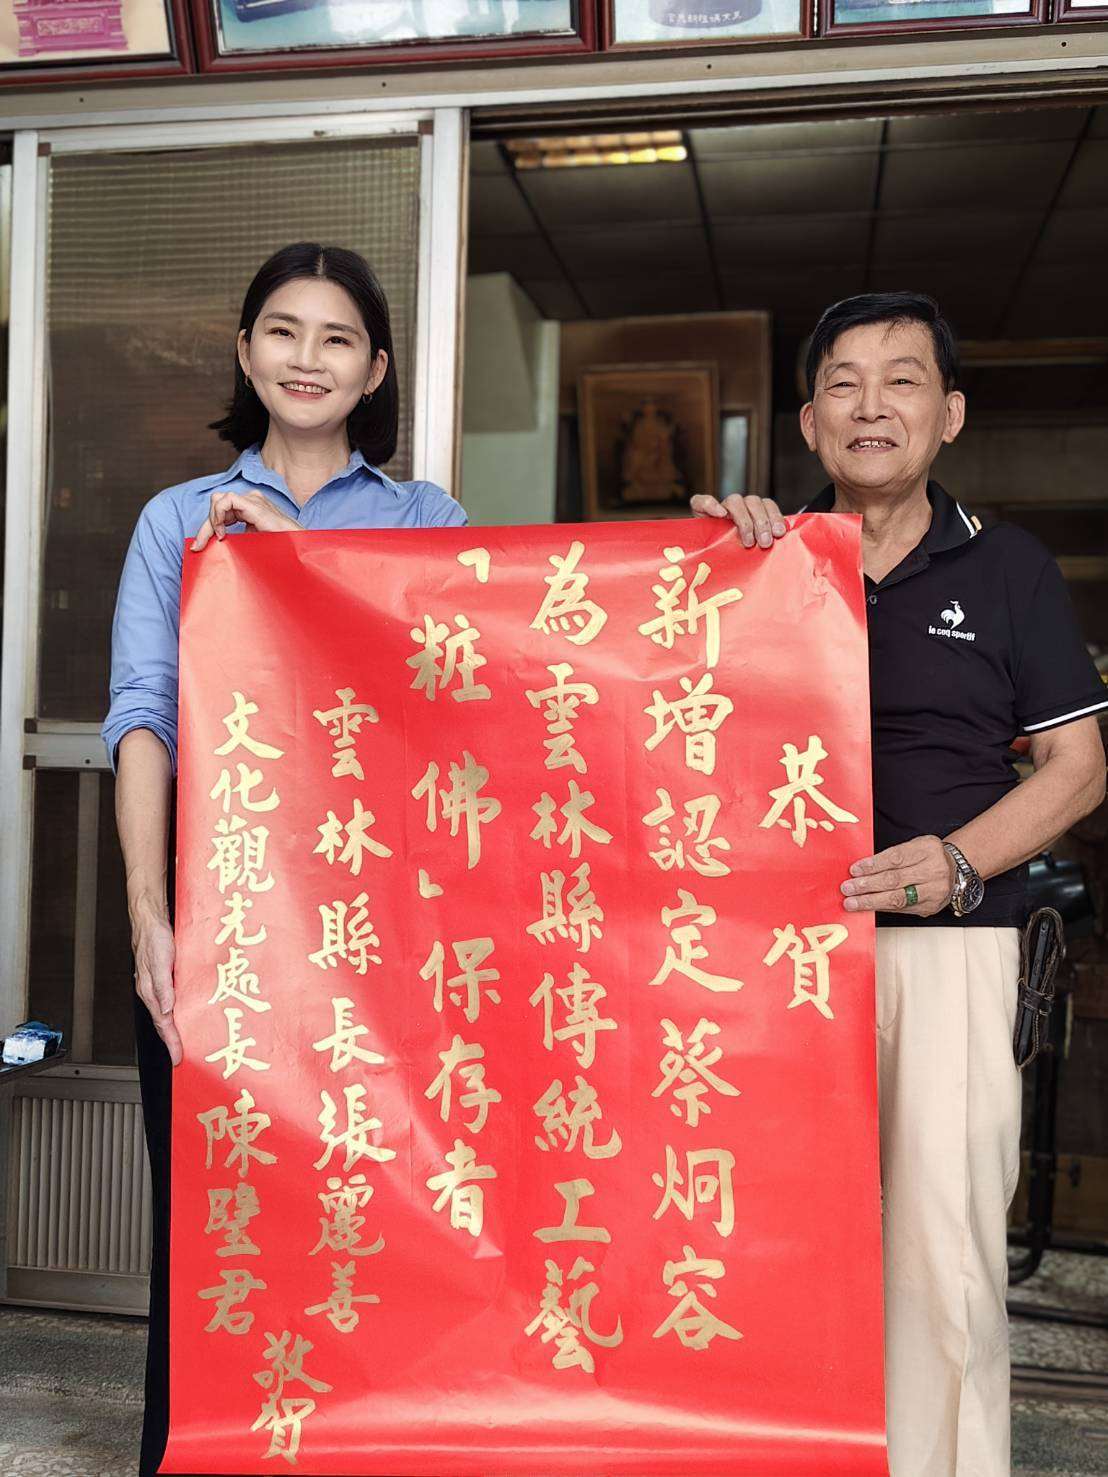 恭賀
新增認定蔡炯容
為雲林縣傳統工藝
「粧佛」保存者
雲林縣長張麗善
文化觀光處長陳璧君
敬賀
le coq sportif